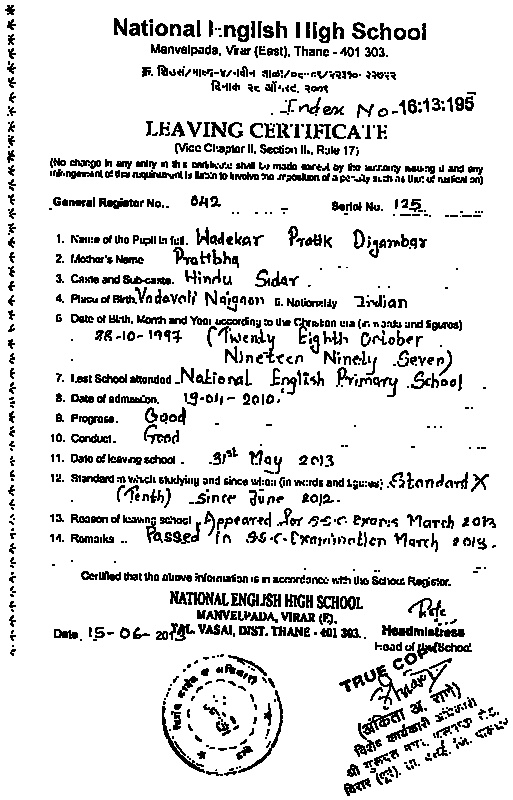 National English High School
Manvelpada, Virar (East), Thane - 401 303.
दिनांक २८ ऑगस्ट, २००१
Index No - 16:13:195
LEAVING CERTIFICATE
(Vice Chapter II, Section II, Rule 17)
(No change in any entry in this certificate shall be made except by the authority issuing it and any
infringement of this requirement is liable to involve the imposition of a penalty such as that of rustication)
General Register No.. 842
Serial No. 125
1. Name of the Pupil in full. Wadekar Pratik Digambar
2. Mother's Name Pratibha
3. Caste and Sub-caste. Hindu Sutar.
4. Place of Birth. Vadavali Naigaon 5. Nationality Indian
6 Date of Birth, Month and Year according to the Christian era (in words and figures)
28-10-1997 (Twenty Eighth October
Nineteen Ninety Seven)
7. Last School attended National English Primary School
8. Date of admission. 19-04-2010.
9. Progress. Good
10. Conduct. Good
11. Date of leaving school. 31st May 2013
12. Standard in which studying and since when (in words and figures) Standard X
(Tenth) Since June 2012.
13. Reason of leaving school Appeared for S.S.C. Exams March 2013
14. Remarks .. Passed in S.S.C. Examination March 2013.
Certified that the above information is in accordance with the School Register.
NATIONAL ENGLISH HIGH SCHOOL
MANVELPADA, VIRAR (E),
Date. 15-06-2013 TAL. VASAI, DIST. THANE - 401 303.
Headmistress
Head of the School
TRUE COPY
(अंकिता अ. राणे)
विशेष कार्यकारी अधिकारी